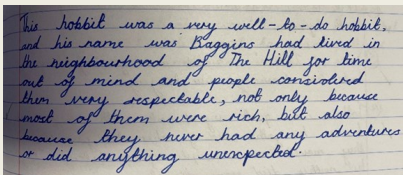 This hobbit was a very well-to-do hobbit,
and his name was Baggins had lived in
the neighbourhood of The Hill for time
out of mind and people considered
them very respectable, not only because
most of them were rich, but also
because they never had any adventures
or did anything unexpected.